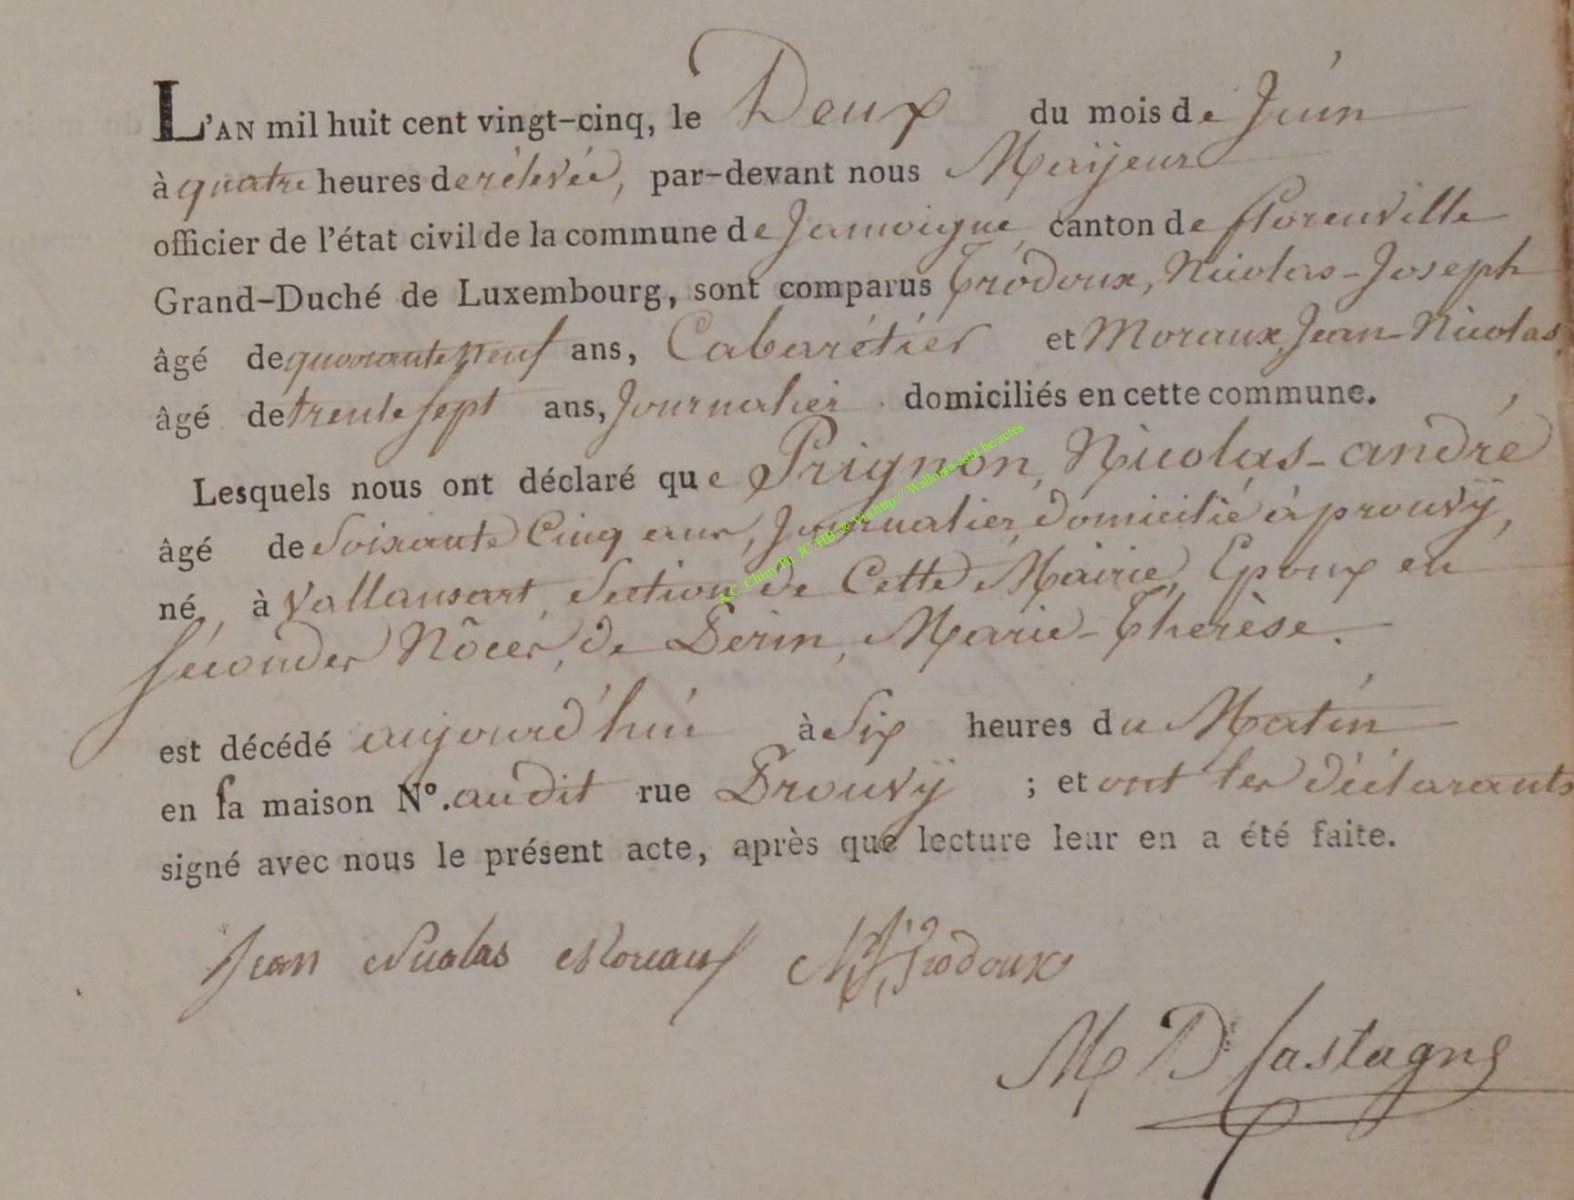 L'AN mil huit cent vingt-cinq, le Deux du mois de Juin
à quatre heures de rélevée, par-devant nous Mayeur
officier de l'état civil de la commune de Jamoigne, canton de florenville
Grand-Duché de Luxembourg, sont comparus Trodoux, Nicolas-Joseph
âgé de quarante neuf ans, Cabarétier et Moraux, Jean-Nicolas,
âgé de trente sept ans, Journalier domiciliés en cette commune.
Lesquels nous ont déclaré que Prignon, Nicolas-andré
âgé de Soixante Cinq ans, Journalier, domicilié à prouvÿ,
né à Vallansart, Section de Cette Mairie, Epoux en
Sécondes Nôces, de Perin, Marie-Thérèse.
est décédé aujourd'hui à Six heures du Matin
en sa maison N°. audit rue Prouvÿ ; et ont les déclarants
signé avec nous le présent acte, après que lecture leur en a été faite.
Jean Nicolas Moraux NJ Trodoux
M D Castagne
A.C. Chiny Ph. JC HB @ Via http:// Wallonia-asbl.be/actes